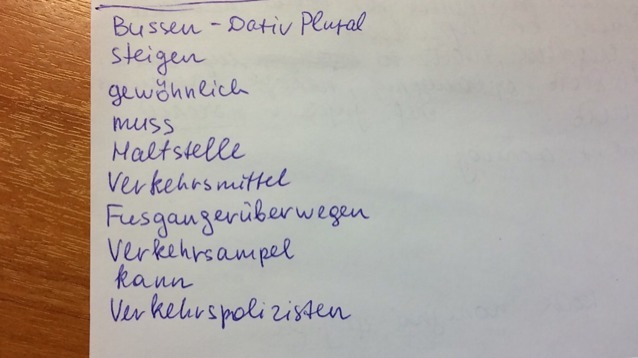 Bussen - Dativ Plural
steigen
gewöhnlich
muss
Haltstelle
Verkehrsmittel
Fusgangerüberwegen
Verkehrsampel
kann
Verkehrspolizisten